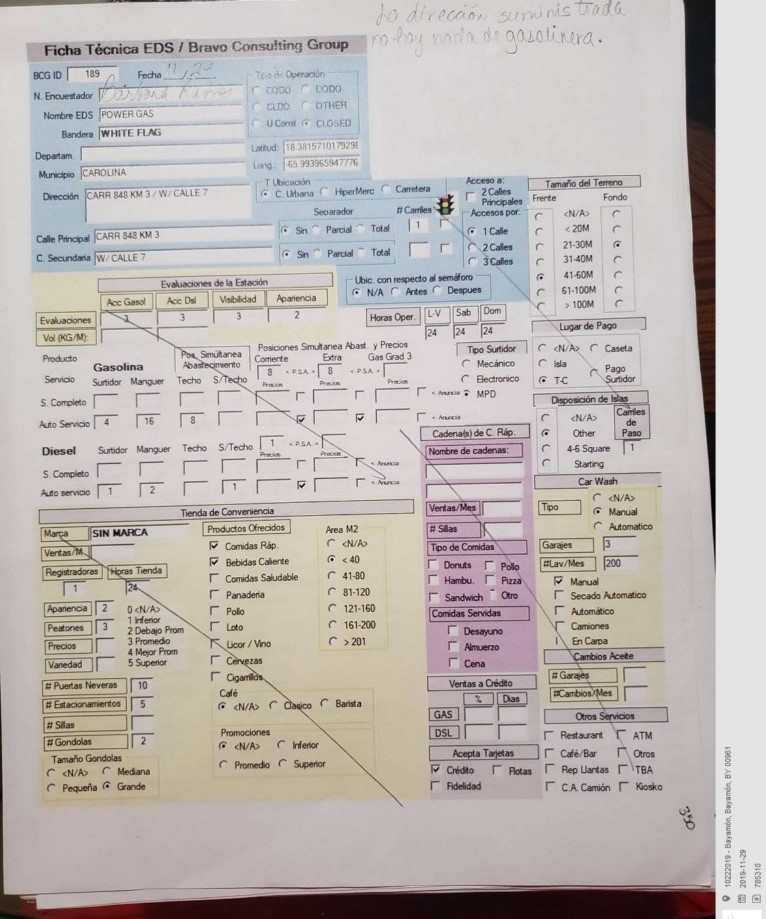 La dirección suministrada
no hay nada de gasolinera.
Ficha Técnica EDS / Bravo Consulting Group
BCG ID 189 Fecha
Tipo de Operación
COCO DODO
CLDO OTHER
U Const CLOSED
N. Encuestador
Nombre EDS POWER GAS
Bandera WHITE FLAG
Departam.
Municipio CAROLINA
Latitud: 18.3815710179296
Long.: -65.993965947776
Dirección CARR 848 KM 3 / W/ CALLE 7
T Ubicación
C. Urbana HiperMerc Carretera
Separador # Carriles
Calle Principal CARR 848 KM 3 Sin Parcial Total 1
C. Secundaria W/ CALLE 7 Sin Parcial Total
Acceso a:
2 Calles Principales
Accesos por:
1 Calle
2 Calles
3 Calles
Ubic. con respecto al semáforo
N/A Antes Despues
Tamaño del Terreno
Frente Fondo
<N/A>
< 20M
21-30M
31-40M
41-60M
61-100M
> 100M
Evaluaciones de la Estación
Acc Gasol Acc Dsl Visibilidad Apariencia
Evaluaciones 3 3 3 2
Vol (KG/M):
Horas Oper. L-V Sab Dom
24 24 24
Lugar de Pago
<N/A> Caseta
Isla Pago Surtidor
T-C
Producto
Gasolina
Pos. Simultánea Abastecimiento
Posiciones Simultanea Abast. y Precios
Corriente Extra Gas Grad 3
8 < P.S.A. > 8 < P.S.A. >
Servicio Surtidor Manguer Techo S/Techo Precios Precios Precios
S. Completo < Anuncia
Auto Servicio 4 16 8 < Anuncia
Tipo Surtidor
Mecánico
Electronico
MPD
Diesel Surtidor Manguer Techo S/Techo 1 < P.S.A. >
Precios Precios
S. Completo < Anuncia
Auto servicio 1 2 1 < Anuncia
Disposición de Islas
<N/A>
Other
4-6 Square
Starting
Carriles de Paso
1
Cadena(s) de C. Ráp.
Nombre de cadenas:
Ventas/Mes
# Sillas
Tipo de Comidas
Donuts Pollo
Hambu. Pizza
Sandwich Otro
Comidas Servidas
Desayuno
Almuerzo
Cena
Car Wash
Tipo
<N/A>
Manual
Automatico
Garajes 3
#Lav/Mes 200
Manual
Secado Automatico
Automático
Camiones
En Carpa
Cambios Aceite
# Garajes
#Cambios/Mes
Tienda de Conveniencia
Marca SIN MARCA
Ventas/M.
Registradoras Horas Tienda
1 24
Apariencia 2
Peatones 3
Precios
Variedad
0 <N/A>
1 Inferior
2 Debajo Prom
3 Promedio
4 Mejor Prom
5 Superior
# Puertas Neveras 10
# Estacionamientos 5
# Sillas
# Gondolas 2
Tamaño Gondolas
<N/A> Mediana
Pequeña Grande
Productos Ofrecidos
Comidas Ráp.
Bebidas Caliente
Comidas Saludable
Panaderia
Pollo
Loto
Licor / Vino
Cervezas
Cigarrillos
Area M2
<N/A>
< 40
41-80
81-120
121-160
161-200
> 201
Café
<N/A> Clasico Barista
Promociones
<N/A> Inferior
Promedio Superior
Ventas a Crédito
% Dias
GAS
DSL
Acepta Tarjetas
Crédito Flotas
Fidelidad
Otros Servicios
Restaurant ATM
Café/Bar Otros
Rep Llantas TBA
C.A. Camión Kiosko
350
10222019 - Bayamón, Bayamón, BY 00961
2019-11-29
785310